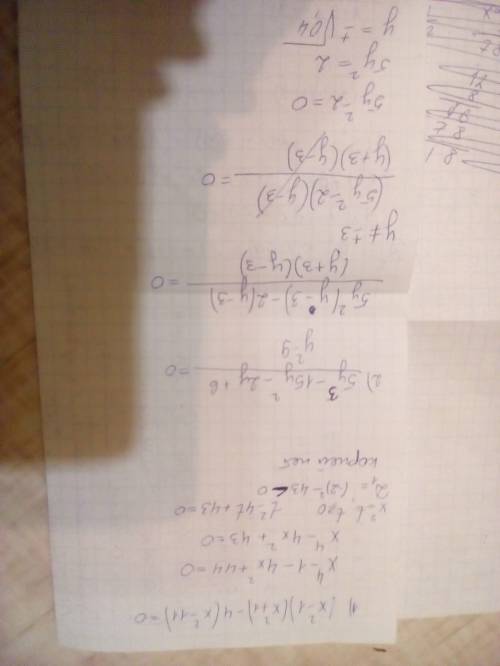 1) (x²-1)(x²+1)-4(x²-11)=0
x⁴-1-4x²+44=0
x⁴-4x²+43=0
x²=t t≥0 t²-4t+43=0
Д₁=(2)²-43<0
корней нет
2) (5y³-15y²-2y+6)/(y²-9)=0
(5y²(y-3)-2(y-3))/((y+3)(y-3))=0
y≠±3
((5y²-2)(y-3))/((y+3)(y-3))=0
5y²-2=0
5y²=2
y=±√0,4